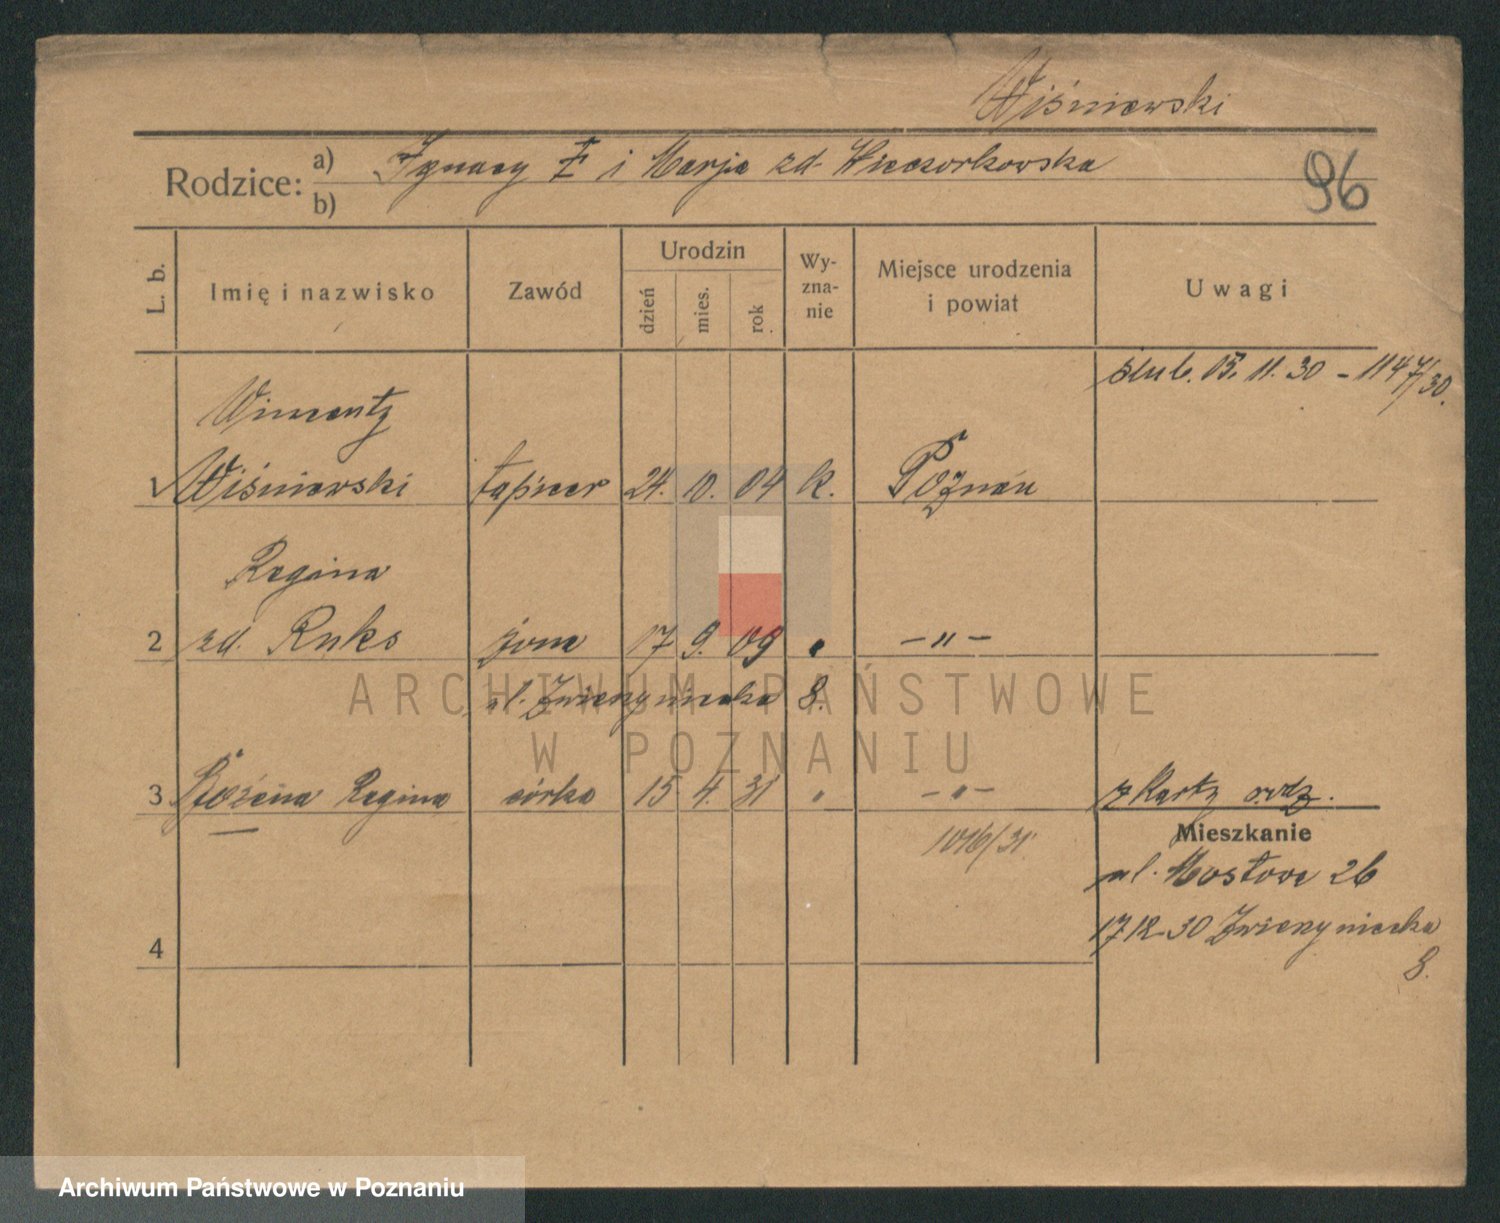 Wiśniewski
Rodzice: a) Ignacy Ł i Marja zd. Wieczorkowska
b)
96
L. b. Imię i nazwisko Zawód Urodzin dzień mies. rok Wy-zna-nie Miejsce urodzenia i powiat Uwagi
ślub. 15. 11. 30 - 1147/30.
Wincenty
1 Wiśniewski tapicer 24. 10. 04 k. Poznań
Regina
2 zd. Ruks żona 17 9. 09 " - " -
ul. Zwierzyniecka 8.
3 Bożena Regina córka 15 4. 31 " - " - z karty rodz.
1016/31 Mieszkanie
ul. Mostowa 26
4 17 12-30 Zwierzyniecka
8.
ARCHIWUM PAŃSTWOWE
W POZNANIU
Archiwum Państwowe w Poznaniu